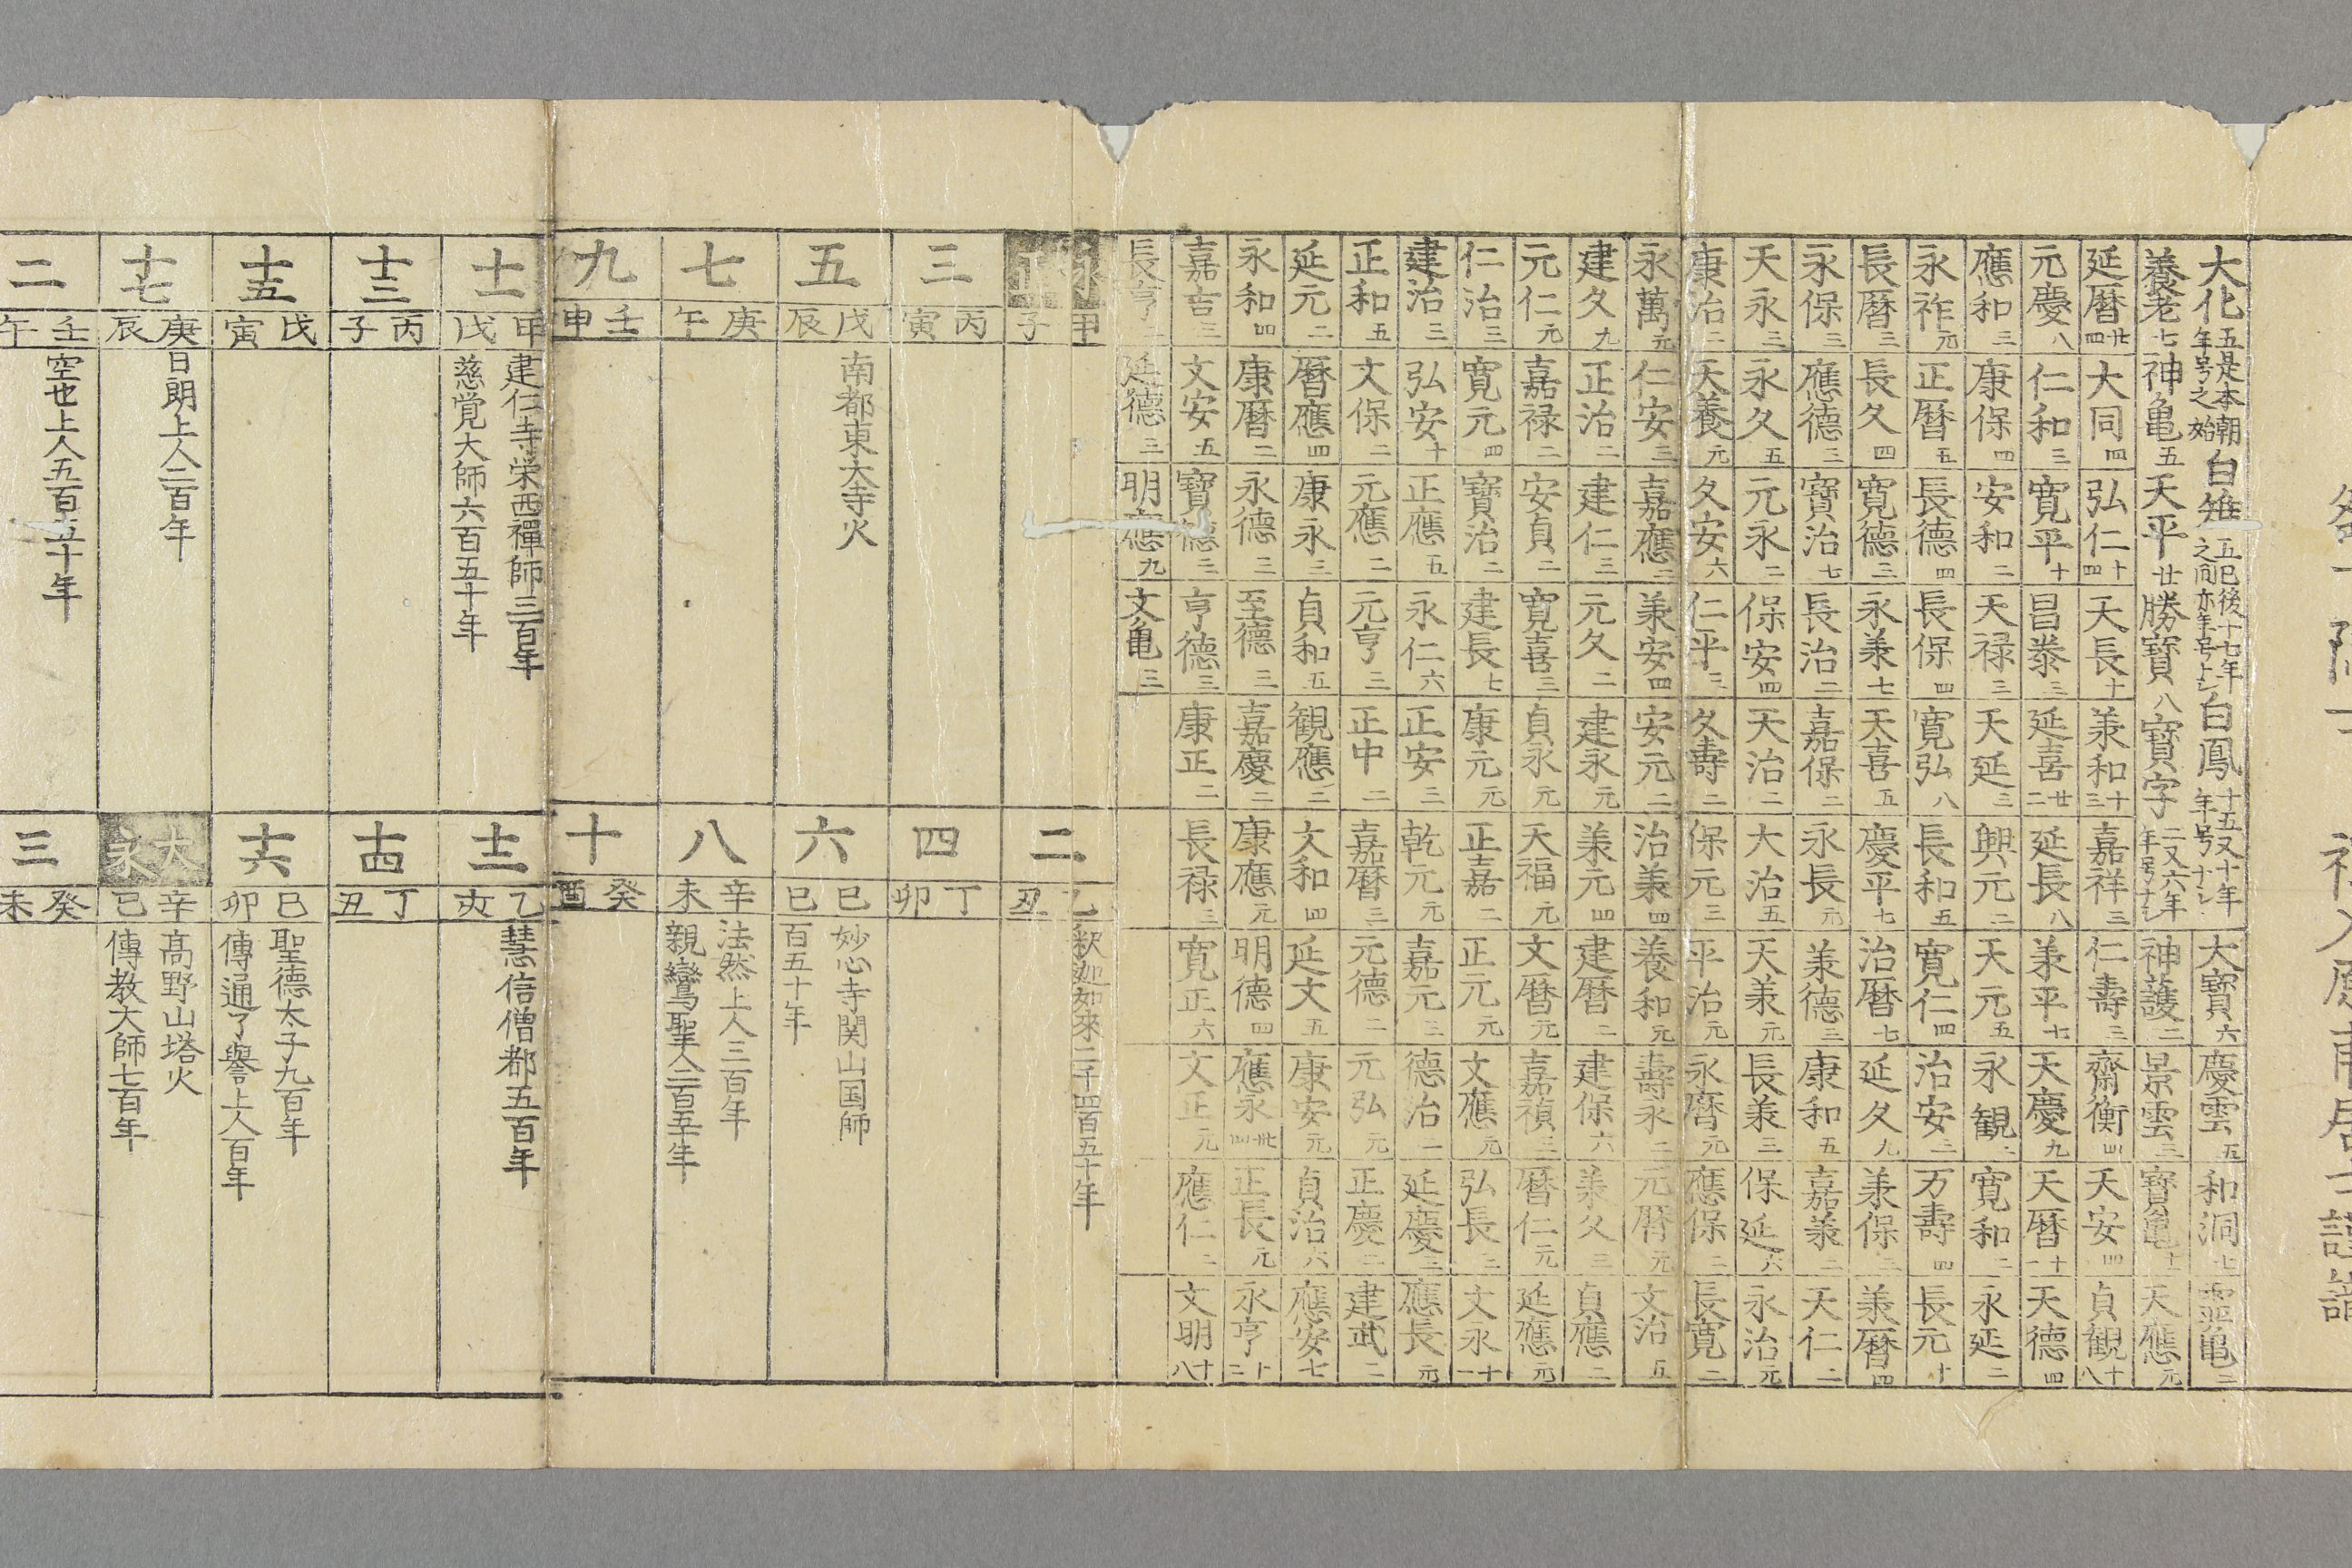 大化 五是本朝年号之始 白雉 五已後十七年之间亦年号ナシ 白鳳 十五又十年年号ナシ 大寶 六 慶雲 五 和洞 七 霊亀 二
養老 七 神亀 五 天平 廿 勝寶 八 寶字 二又六年年号ナシ 神護 二 景雲 三 寶亀 十一 天應 元
延暦 廿四 大同 四 弘仁 十四 天長 十 美和 十三 嘉祥 三 仁壽 三 齋衡 四 天安 四 貞観 十八
元慶 八 仁和 三 寛平 十 昌泰 三 延喜 廿二 延長 八 美平 七 天慶 九 天暦 十一 天德 四
應和 三 康保 四 安和 二 天禄 三 天延 三 興元 二 天元 五 永観 二 寛和 二 永延 二
永祚 元 正暦 五 長德 四 長保 四 寛弘 八 長和 五 寛仁 四 治安 三 万壽 四 長元 十
長暦 三 長久 四 寛德 二 永美 七 天喜 五 慶平 七 治暦 七 延久 九 美保 三 美暦 四
永保 三 應德 三 寶治 七 長治 二 嘉保 二 永長 元 美德 三 康和 五 嘉美 二 天仁 二
天永 三 永久 五 元永 二 保安 四 天治 二 大治 五 天美 元 長美 三 保延 六 永治 元
康治 二 天養 元 久安 六 仁平 三 久壽 二 保元 三 平治 元 永暦 元 應保 二 長寛 二
永萬 元 仁安 三 嘉應 二 美安 四 安元 二 治美 四 養和 元 壽永 二 元暦 元 文治 五
建久 九 正治 二 建仁 三 元久 二 建永 元 美元 四 建暦 二 建保 六 美久 三 貞應 二
元仁 元 嘉禄 二 安貞 二 寛喜 三 貞永 元 天福 元 文暦 元 嘉禎 三 暦仁 元 延應 元
仁治 三 寛元 四 寶治 二 建長 七 康元 元 正嘉 二 正元 元 文應 元 弘長 三 文永 十一
建治 三 弘安 十 正應 五 永仁 六 正安 三 乾元 元 嘉元 三 德治 二 延慶 三 應長 元
正和 五 文保 二 元應 二 元亨 三 正中 二 嘉暦 三 元德 二 元弘 元 正慶 二 建武 二
延元 二 暦應 四 康永 三 貞和 五 観應 二 文和 四 延文 五 康安 元 貞治 六 應安 七
永和 四 康暦 二 永德 三 至德 三 嘉慶 二 康應 元 明德 四 應永 卅四 正長 元 永亨 十二
嘉吉 三 文安 五 寶德 三 亨德 三 康正 二 長禄 三 寛正 六 文正 元 應仁 二 文明 十八
長亨 二 延德 三 明應 九 文亀 三
永正 甲子
二 乙丑 釈迦如來二千四百五十年
三 丙寅
四 丁卯
五 戊辰 南都東大寺火
六 巳巳 妙心寺関山国師
百五十年
七 庚午
八 辛未 法然上人三百年
親鸞聖人二百五十年
九 壬申
十 癸酉
十一 甲戌 建仁寺栄西禪師三百年
慈覚大師六百五十年
十二 乙亥 慧信僧都五百年
十三 丙子
十四 丁丑
十五 戊寅
十六 巳卯 聖德太子九百年
傳通了譽上人百年
十七 庚辰 日朗上人二百年
大永 辛巳 高野山塔火
傳教大師七百年
二 壬午 空也上人五百五十年
三 癸未